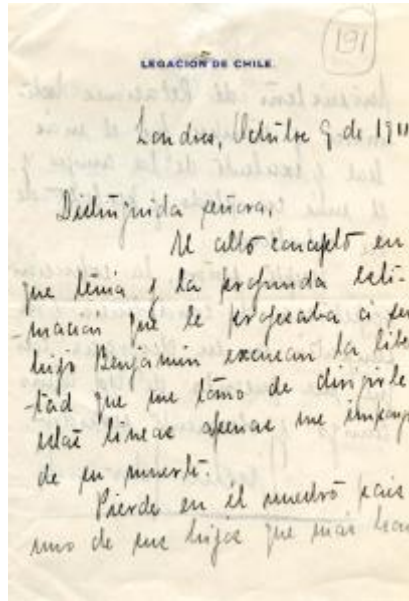 191
LEGACIÓN DE CHILE.
Londres, Octubre 9 de 1911
Distinguida señora,
El alto concepto en
que tenia y la profunda esti-
macion que le profesaba a su
hijo Benjamin excusan la liber
-tad que me tomo de dirigirle
estas lineas apenas me impongo
de su muerte.
Pierde en él nuestro pais
uno de sus hijos que mas han